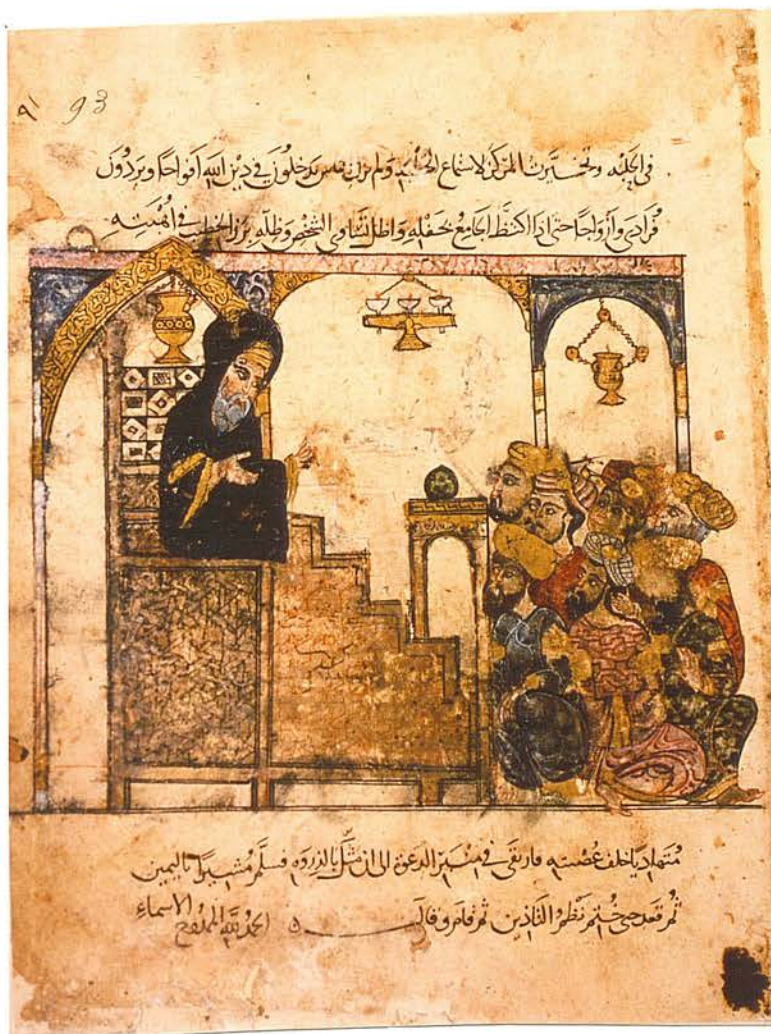 ٩١ 93
في الحلبه وتخيرت المركز لاستماع الخطبه ولم يزل الناس يدخلون في دين الله افواجا ويردون
فرادى وأزواجا حتى اذا اكتظ الجامع بحفله واظل تساوي الشخص وظله برز الخطيب في اهبته
متهاديا خلف عصبته فارتقى في منبر الدعوة الى ان مثل بالذروه فسلم مشيرا باليمين
ثم قعد حتى ختم نظم التأذين ثم قام وقال ٥ الحمد لله الممدوح الاسماء